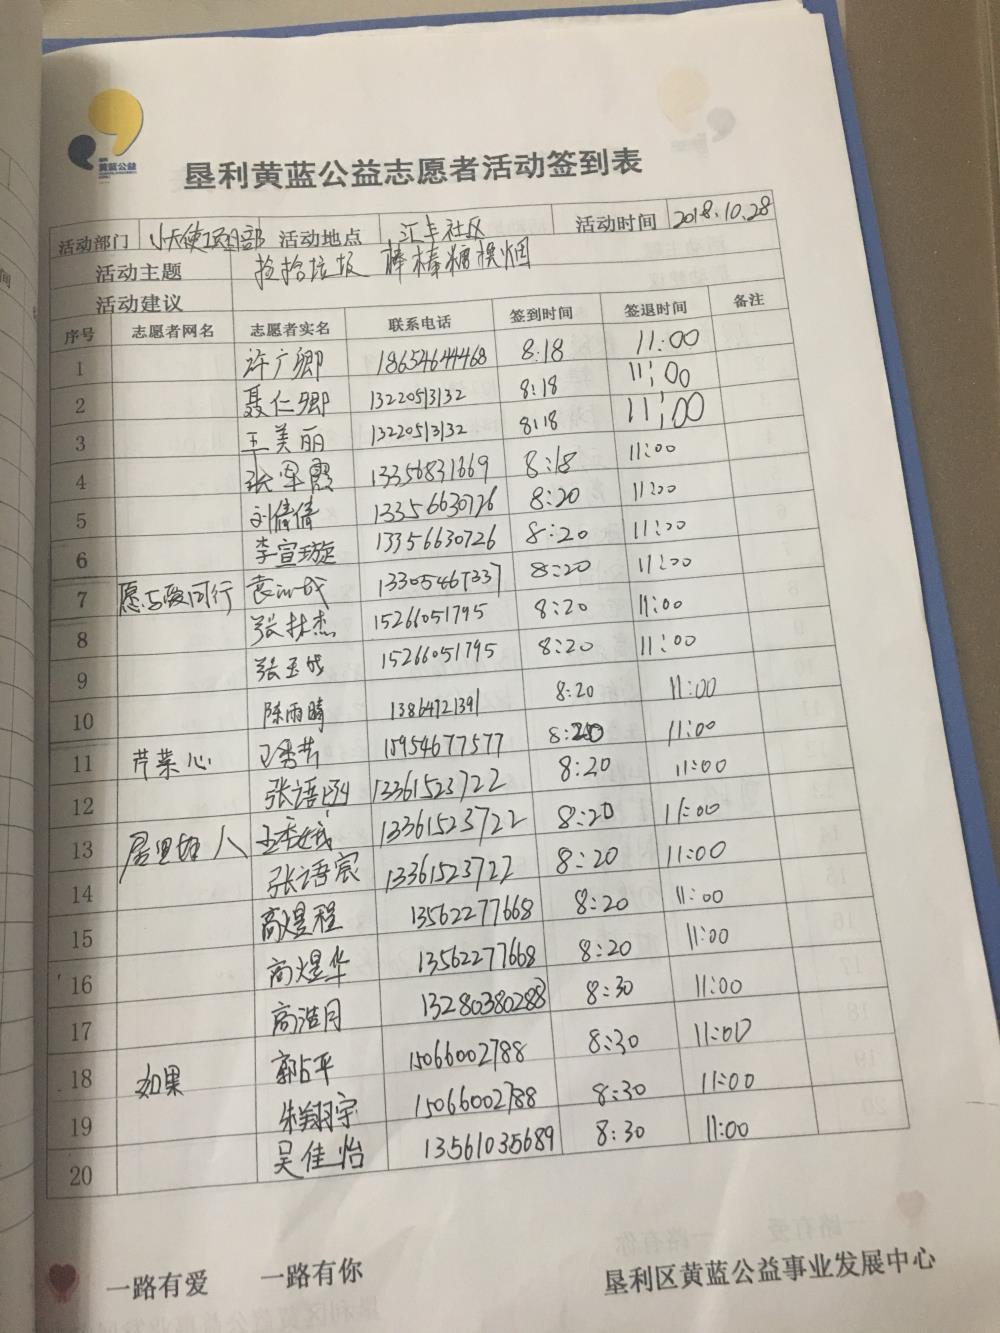 黄蓝公益
垦利黄蓝公益志愿者活动签到表
活动部门 小天使项目部 活动地点 汇丰社区 活动时间 2018.10.28
活动主题 捡捡垃圾 棒棒糖换烟
活动建议
序号 志愿者网名 志愿者实名 联系电话 签到时间 签退时间 备注
1 许广卿 18654644468 8:18 11:00
2 聂仁卿 13220513132 8:18 11:00
3 王美丽 13220513132 8:18 11:00
4 张军霞 13356831669 8:18 11:00
5 刘倩倩 13356630726 8:20 11:00
6 李宣璇 13356630726 8:20 11:00
7 愿与爱同行 13305467337 8:20 11:00
8 张林杰 15266051795 8:20 11:00
9 张玉成 15266051795 8:20 11:00
10 陈雨晴 13864721391 8:20 11:00
11 芹菜心 15954677577 8:20 11:00
12 张语 13361523722 8:20 11:00
13 居里如人 13361523722 8:20 11:00
14 张语宸 13361523722 8:20 11:00
15 高煜程 13562277668 8:20 11:00
16 高煜华 13562277668 8:20 11:00
17 高浩月 13280380288 8:30 11:00
18 如果 郭占平 15066002788 8:30 11:00
19 朱翔宇 15066002788 8:30 11:00
20 吴佳怡 13561035689 8:30 11:00
一路有爱 一路有你 垦利区黄蓝公益事业发展中心